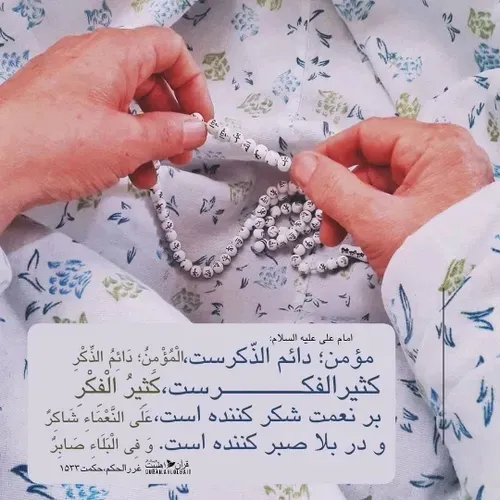 امام علی علیه السلام:
مؤمن؛ دائم الذّکرست،الْمُؤْمِنُ؛ دَائِمُ الذِّكْرِ
کثیرالفکرست،كَثيرُ الْفِكْرِ
بر نعمت شکر کننده است،عَلَى النَّعْمَاءِ شَاكِرٌ
و در بلا صبر کننده است. وَ فِي الْبَلَاءِ صَابِرٌ
غررالحکم،حکمت ۱۵۳۳